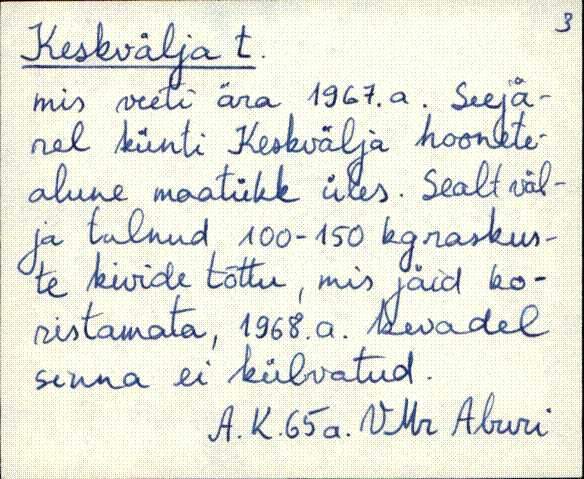 3
Keskvälja t.
mis veeti ära 1967.a. Seejä-
rel künti Keskvälja hoonete-
alune maatükk üles. Sealt väl-
ja tulnud 100-150 kgraskus-
te kivide tõttu, mis jäid ko-
ristamata, 1968.a. kevadel
sinna ei külvatud.
A.K.65a. VMr Aburi